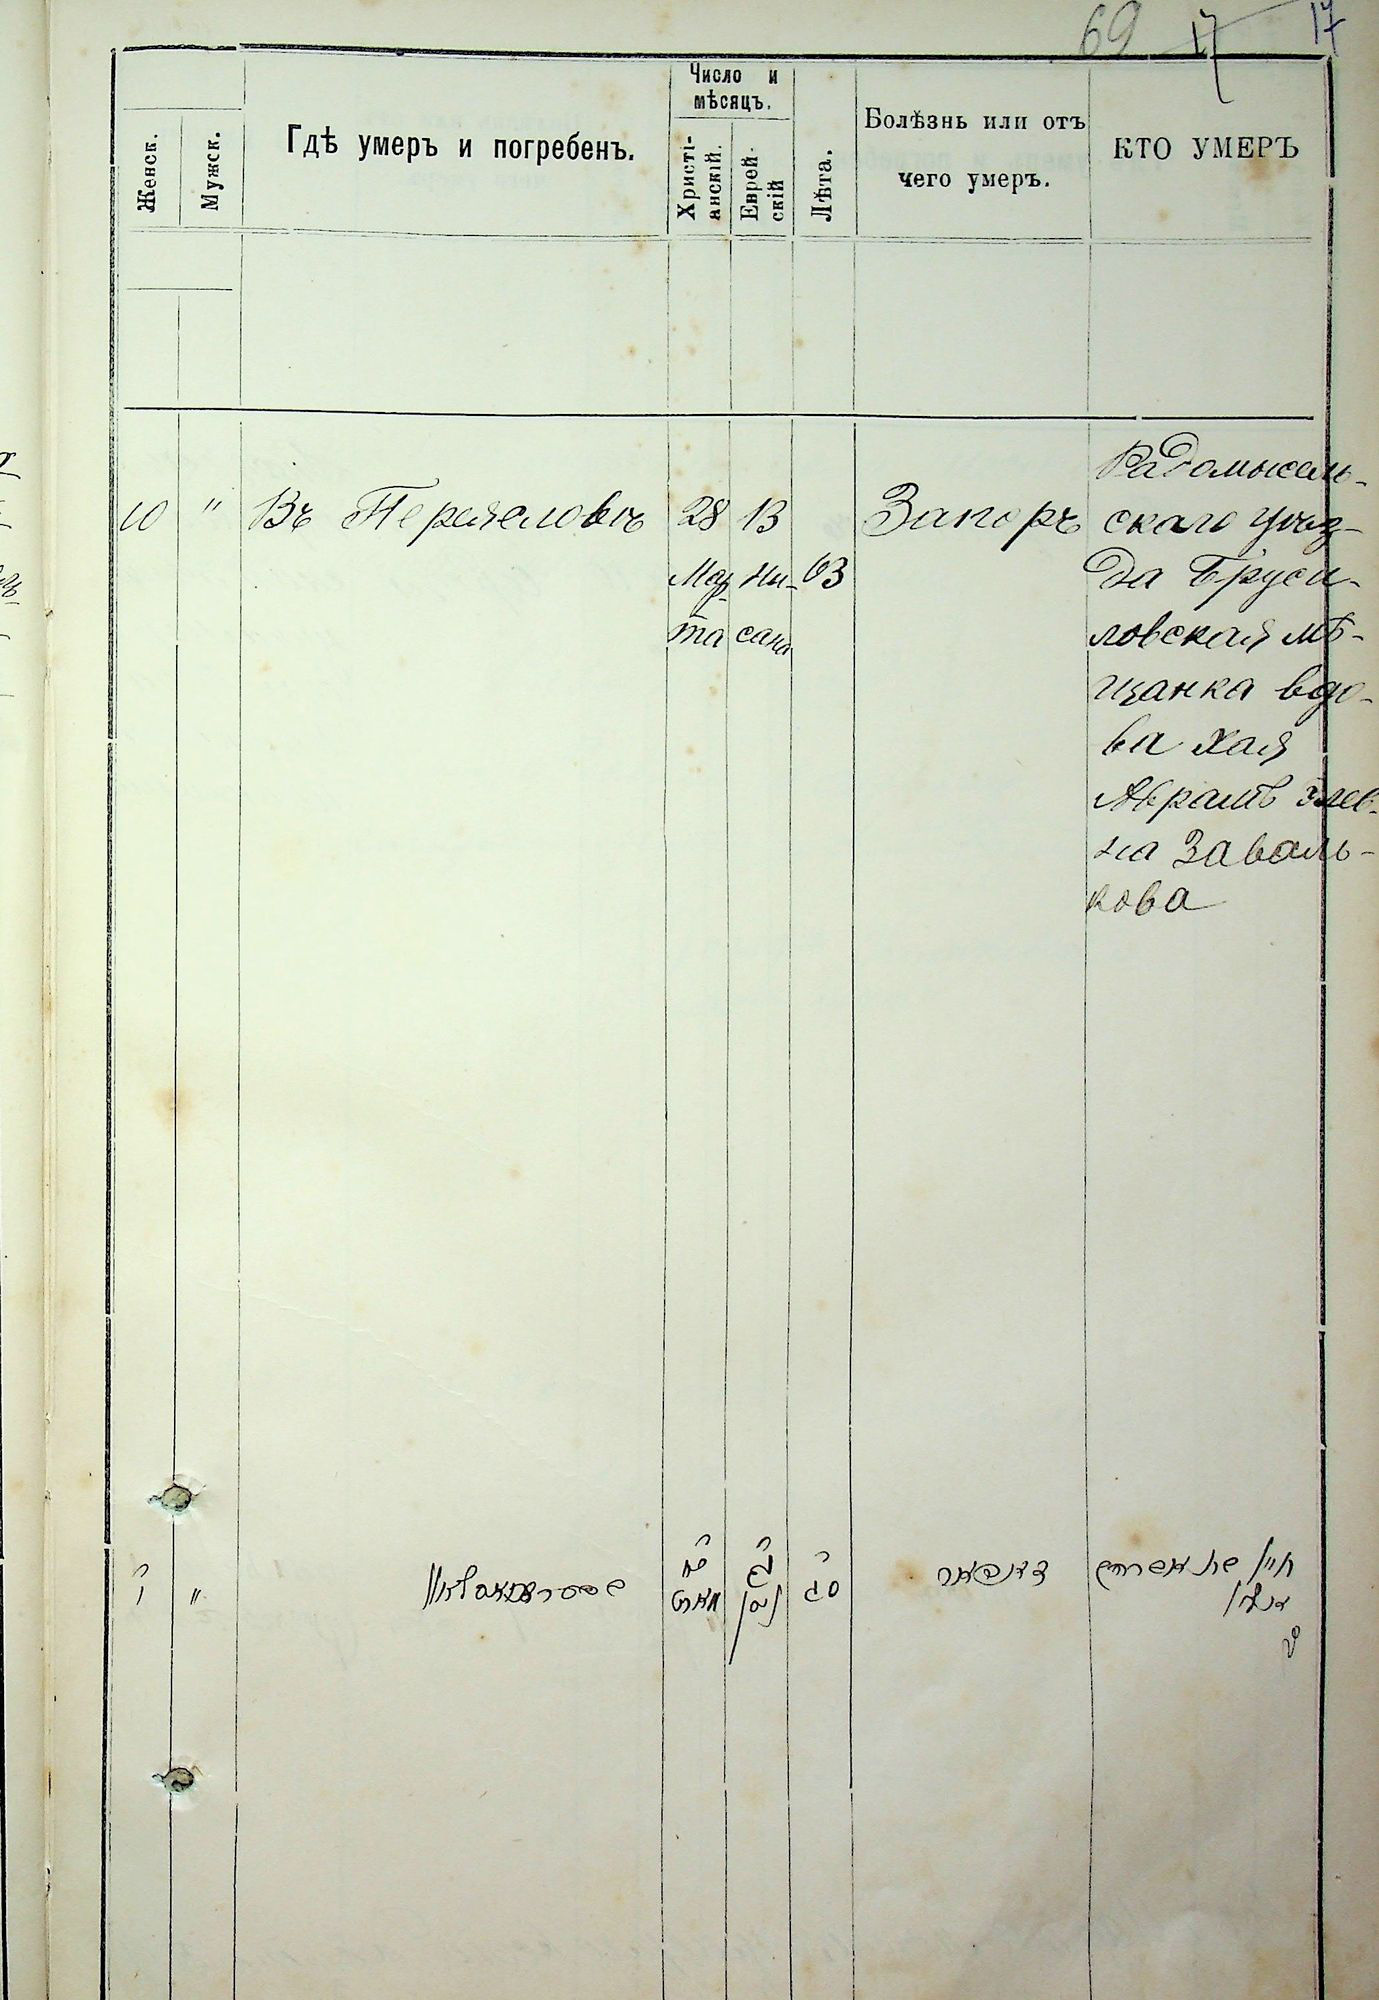 69 17 17
Женск.
Мужск.
Гдѣ умеръ и погребенъ.
Число и
мѣсяцъ.
Христі-
анскій.
Еврей-
скій
Лѣта.
Болѣзнь или отъ
чего умеръ.
КТО УМЕРЪ
10 " Въ Переяславѣ
28
Мар-
та
13
Ни-
сана
63
Запоръ
Радомысль-
скаго уѣз-
да Бруси-
ловская мѣ-
щанка вдо-
ва Хая
Абрамъ
на Заваль-
кова
י "
כח
מארט
יג
ניסן
סג
זאפאר